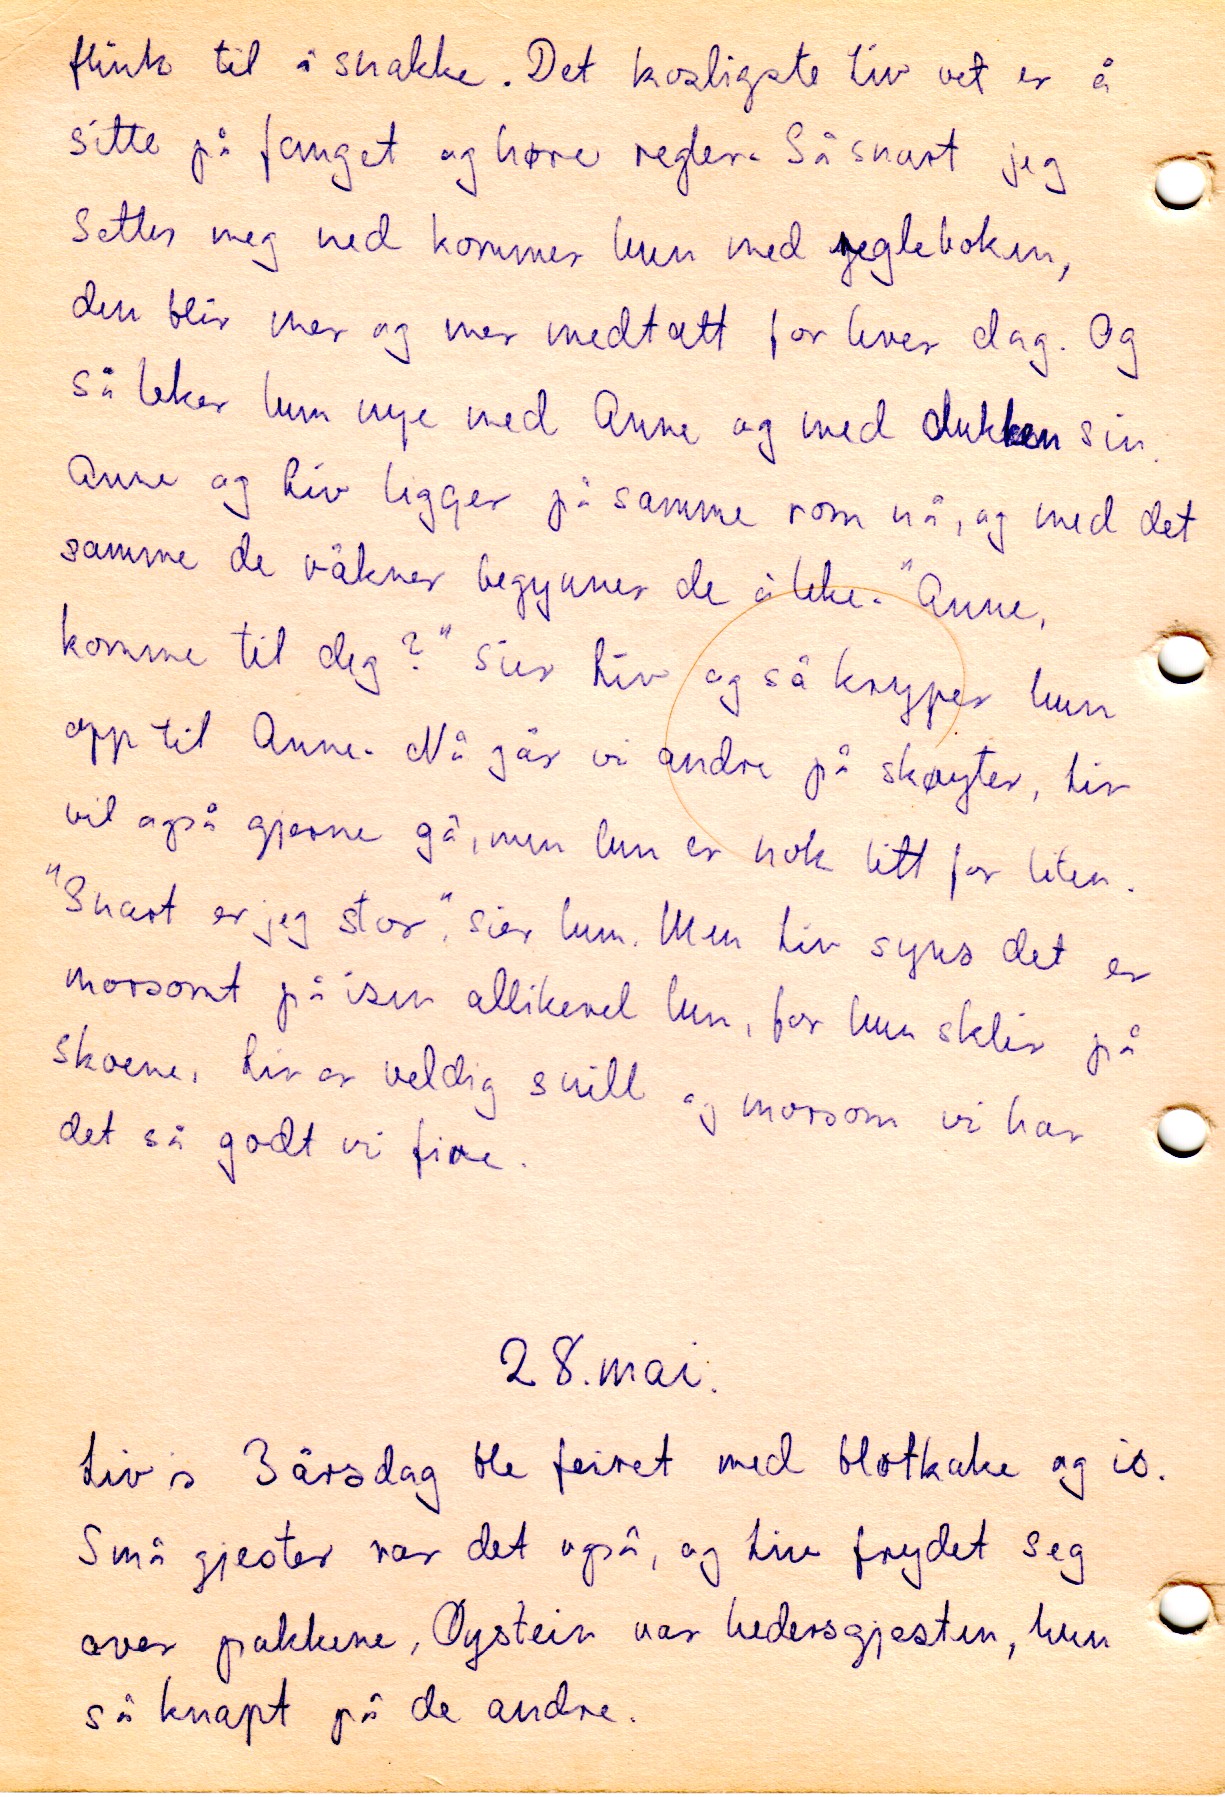 flink til å snakke. Det koseligste Liv vet er å
sitte på fanget og høre regler. Så snart jeg
setter meg ned kommer hun med regleboken,
den blir mer og mer medtatt for hver dag. Og
så leker hun mye med Anne og med dukken sin.
Anne og Liv ligger på samme rom nå, og med det
samme de våkner begynner de å leke. "Anne,
komme til deg?" sier Liv og så kryper hun
opp til Anne. Nå går vi andre på skøyter, Liv
vil også gjerne gå, men hun er nok litt for liten.
"Snart er jeg stor", sier hun. Men Liv syns det er
morsomt på isen allikevel hun, for hun sklir på
skoene. Liv er veldig snill og morsom vi har
det så godt vi fire.
28. mai.
Liv's 3årsdag ble feiret med bløtkake og is.
Små gjester var det også, og Liv frydet seg
over pakkene, Øystein var hedersgjesten, hun
så knapt på de andre.